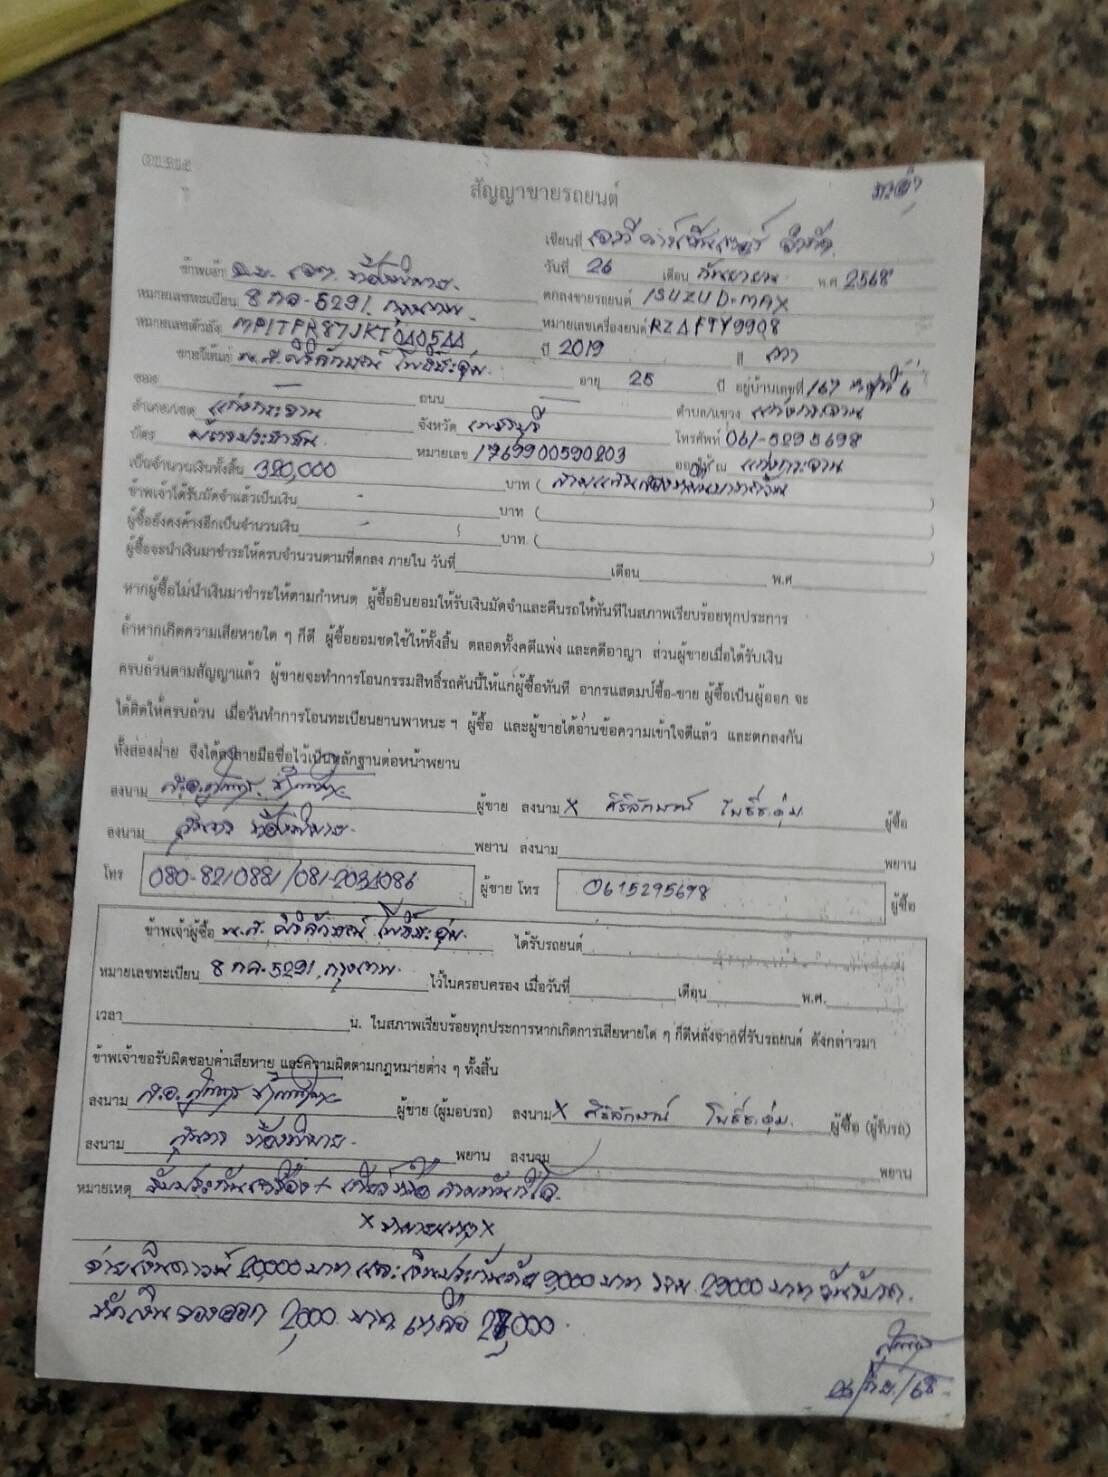 สัญญาขายรถยนต์
เขียนที่ จำกัด
วันที่ 26 เดือน กันยายน พ.ศ 2568
ข้าพเจ้า
หมายเลขทะเบียน 8 กค-5291 กรุงเทพ ตกลงขายรถยนต์ ISUZU D-MAX
หมายเลขตัวถัง MP1TFR87JKT040544 หมายเลขเครื่องยนต์ RZ4FTY9908
ขายให้แก่ น.ส. ศิริลักษณ์ ปี 2019 สี เทา
อายุ 25 ปี อยู่บ้านเลขที่ 167 หมู่ที่ 6
ซอย - ถนน -
อำเภอ/เขต แก่งกระจาน จังหวัด เพชรบุรี ตำบล/แขวง แก่งกระจาน
บัตร บัตรประชาชน หมายเลข 1769900590203 โทรศัพท์ 061-5295698
ออกให้ ณ แก่งกระจาน
เป็นจำนวนเงินทั้งสิ้น 320,000 บาท ( สามแสนสองหมื่นบาทถ้วน )
ข้าพเจ้าได้รับมัดจำแล้วเป็นเงิน - บาท ( )
ผู้ซื้อยังคงค้างอีกเป็นจำนวนเงิน - บาท ( )
ผู้ซื้อจะนำเงินมาชำระให้ครบจำนวนตามที่ตกลง ภายใน วันที่ เดือน พ.ศ
หากผู้ซื้อไม่นำเงินมาชำระให้ตามกำหนด ผู้ซื้อยินยอมให้รับเงินมัดจำและคืนรถให้ทันทีในสภาพเรียบร้อยทุกประการ
ถ้าหากเกิดความเสียหายใด ๆ ก็ดี ผู้ซื้อยอมชดใช้ให้ทั้งสิ้น ตลอดทั้งคดีแพ่ง และคดีอาญา ส่วนผู้ขายเมื่อได้รับเงิน
ครบถ้วนตามสัญญาแล้ว ผู้ขายจะทำการโอนกรรมสิทธิ์รถคันนี้ให้แก่ผู้ซื้อทันที อากรแสตมป์ซื้อ-ขาย ผู้ซื้อเป็นผู้ออก จะ
ได้ติดให้ครบถ้วน เมื่อวันทำการโอนทะเบียนยานพาหนะ ฯ ผู้ซื้อ และผู้ขายได้อ่านข้อความเข้าใจดีแล้ว และตกลงกัน
ทั้งสองฝ่าย จึงได้ลงลายมือชื่อไว้เป็นหลักฐานต่อหน้าพยาน
ลงนาม ผู้ขาย ลงนาม X ศิริลักษณ์ ผู้ซื้อ
ลงนาม พยาน ลงนาม พยาน
โทร 080-8210881/081-2034086 ผู้ขาย โทร 0615295698 ผู้ซื้อ
ข้าพเจ้าผู้ซื้อ น.ส. ศิริลักษณ์ ได้รับรถยนต์
หมายเลขทะเบียน 8 กค-5291 กรุงเทพ ไว้ในครอบครอง เมื่อวันที่ เดือน พ.ศ.
เวลา น. ในสภาพเรียบร้อยทุกประการหากเกิดการเสียหายใด ๆ ก็ดีหลังจากที่รับรถยนต์ ดังกล่าวมา
ข้าพเจ้าขอรับผิดชอบค่าเสียหาย และความผิดตามกฎหมายต่าง ๆ ทั้งสิ้น
ลงนาม ผู้ขาย (ผู้มอบรถ) ลงนาม X ศิริลักษณ์ ผู้ซื้อ (ผู้รับรถ)
ลงนาม พยาน ลงนาม พยาน
หมายเหตุ รับประกันเครื่อง + เกียร์
จ่ายเงินดาวน์ 20,000 บาท และเงินประกันภัย 9,000 บาท รวม 29,000 บาท
หักเงินจองออก 2,000 บาท
26/ก.ย./68